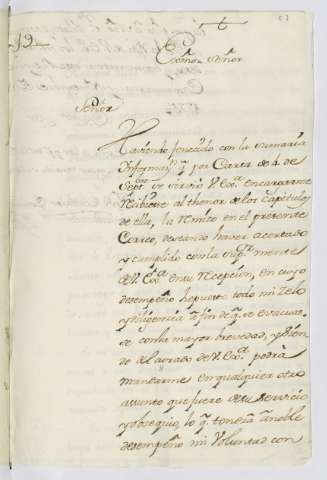 Exmo. Señor
Señor
Haviendo fenecido con la sumaria
Informazn. q por Carta de 4. de
Sepbre se sirvió V. Exa. encargarme
recibiere al thenor de los Capitulos
de ella, la remito en el presente
Correo, deseando haver acertado
y cumplido con la supr. mente
de V. Exa. en su recepcion, en cuyo
desempeño he puesto todo mi zelo
y diligencia a fin de q. se evacuase
con la mayor brevedad, y siendo
de el agrado de V. Exa. podrá
mandarme en qualquier otro
assunto que fuere de su servicio
y obsequio, lo q. tendrá a noble
desempeño mi Voluntad con